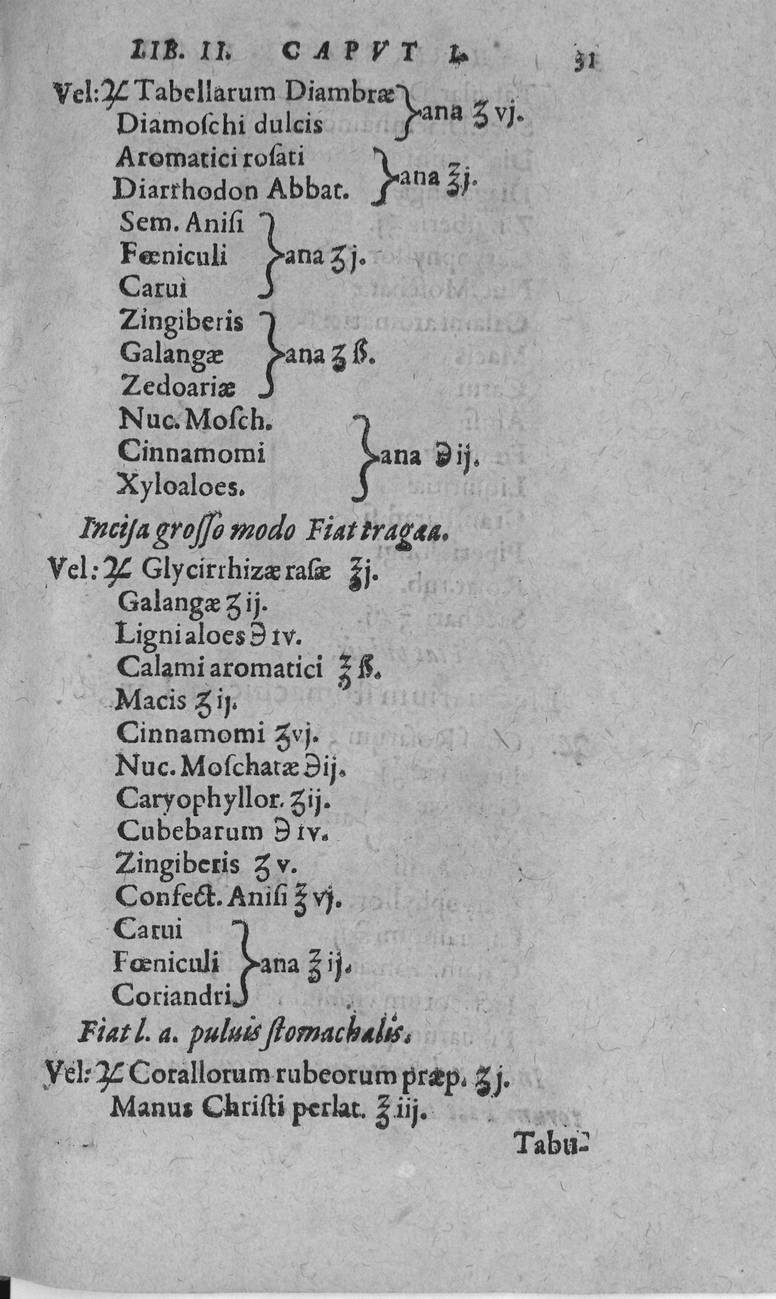 LIB. II. CAPVT I. 31
Vel: ℞ Tabellarum Diambræ
Diamoſchi dulcis } ana ʒ vj.
Aromatici roſati
Diarrhodon Abbat. } ana ℥j.
Sem. Aniſi
Fœniculi } ana ʒ j.
Carui
Zingiberis
Galangæ } ana ʒ ß.
Zedoariæ
Nuc. Moſch.
Cinnamomi } ana ℈ ij.
Xyloaloes.
Inciſa groſſo modo Fiat tragæa.
Vel: ℞ Glycirrhizæ raſæ ℥j.
Galangæ ʒ ij.
Ligni aloes ℈ ıv.
Calami aromatici ℥ ß.
Macis ʒ ij.
Cinnamomi ʒvj.
Nuc. Moſchatæ ℈ij.
Caryophyllor. ʒij.
Cubebarum ℈ ıv.
Zingiberis ʒ v.
Confect. Aniſi ℥ vj.
Carui
Fœniculi } ana ℥ ij.
Coriandri
Fiat l. a. puluis ſtomachalis.
Vel: ℞ Corallorum rubeorum præp. ʒj.
Manus Chriſti perlat. ℥ iij.
Tabu-